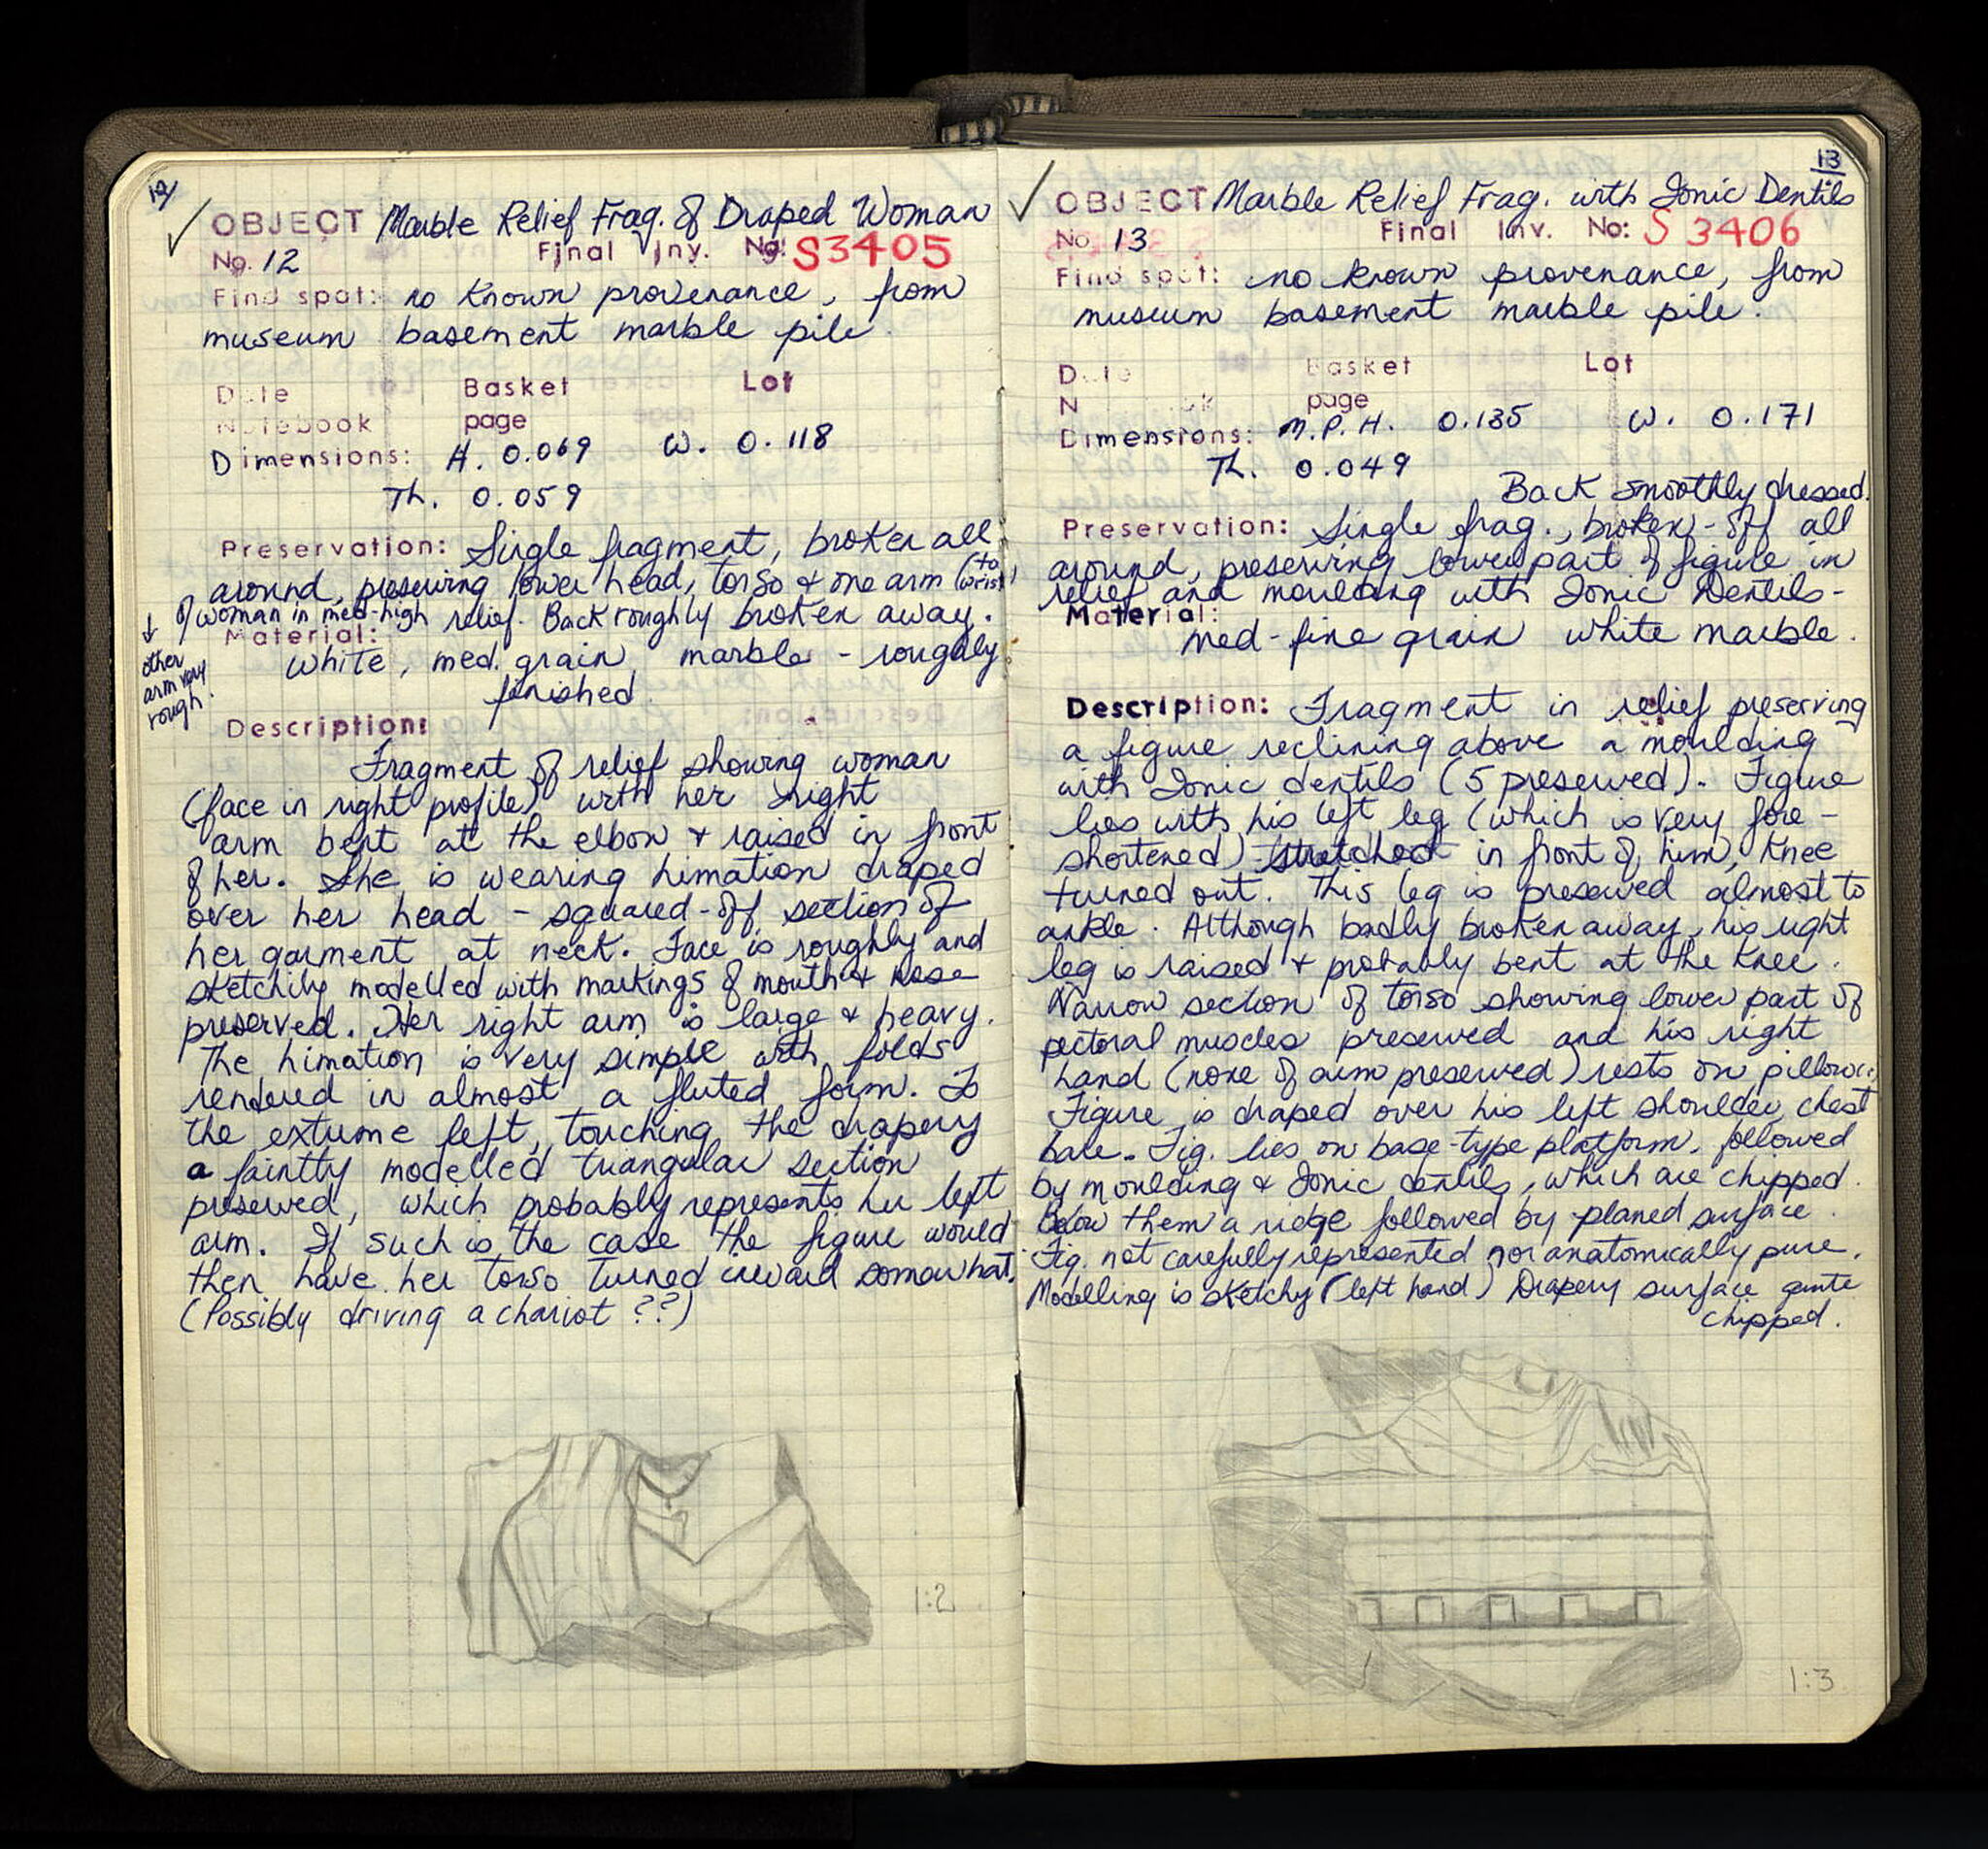 12
✓ OBJECT Marble Relief Frag. of Draped Woman
No. 12 Final Inv. No: S3405
Find spot: no known provenance, from
museum basement marble pile.
Date Basket Lot
Notebook page
Dimensions: H. 0.069 W. 0.118
Th. 0.059
Preservation: Single fragment, broken all
around, preserving lower head, torso & one arm (to wrist)
of woman in med-high relief. Back roughly broken away.
↓ other arm very rough.
Material:
White, med. grain marble - roughly
finished.
Description:
Fragment of relief showing woman
(face in right profile) with her right
arm bent at the elbow & raised in front
of her. She is wearing himation draped
over her head - squared-off section of
her garment at neck. Face is roughly and
sketchily modelled with markings of mouth & nose
preserved. Her right arm is large & heavy.
The himation is very simple with folds
rendered in almost a fluted form. To
the extreme left, touching the drapery
a faintly modelled triangular section
preserved, which probably represents her left
arm. If such is the case the figure would
then have her torso turned inward somewhat.
(Possibly driving a chariot ??)
1:2
13
✓ OBJECT Marble Relief Frag. with Ionic Dentils
No. 13 Final Inv. No: S 3406
Find spot: no known provenance, from
museum basement marble pile.
Date Basket Lot
page
Dimensions: M.P.H. 0.135 W. 0.171
Th. 0.049
Back smoothly dressed.
Preservation: Single frag., broken-off all
around, preserving lower part of figure in
relief and moulding with Ionic Dentils-
Material:
Med-fine grain white marble.
Description: Fragment in relief preserving
a figure reclining above a moulding
with Ionic dentils (5 preserved). Figure
lies with his left leg (which is very fore-
shortened) stretched in front of him, knee
turned out. This leg is preserved almost to
ankle. Although badly broken away, his right
leg is raised & probably bent at the knee.
Narrow section of torso showing lower part of
pectoral muscles preserved and his right
hand (none of arm preserved) rests on pillow
Figure is draped over his left shoulder, chest
bare. Fig. lies on base-type platform, followed
by moulding & Ionic dentils, which are chipped.
Below them a ridge followed by planed surface.
Fig. not carefully represented nor anatomically pure.
Modelling is sketchy (left hand) Drapery surface quite
chipped.
1:3